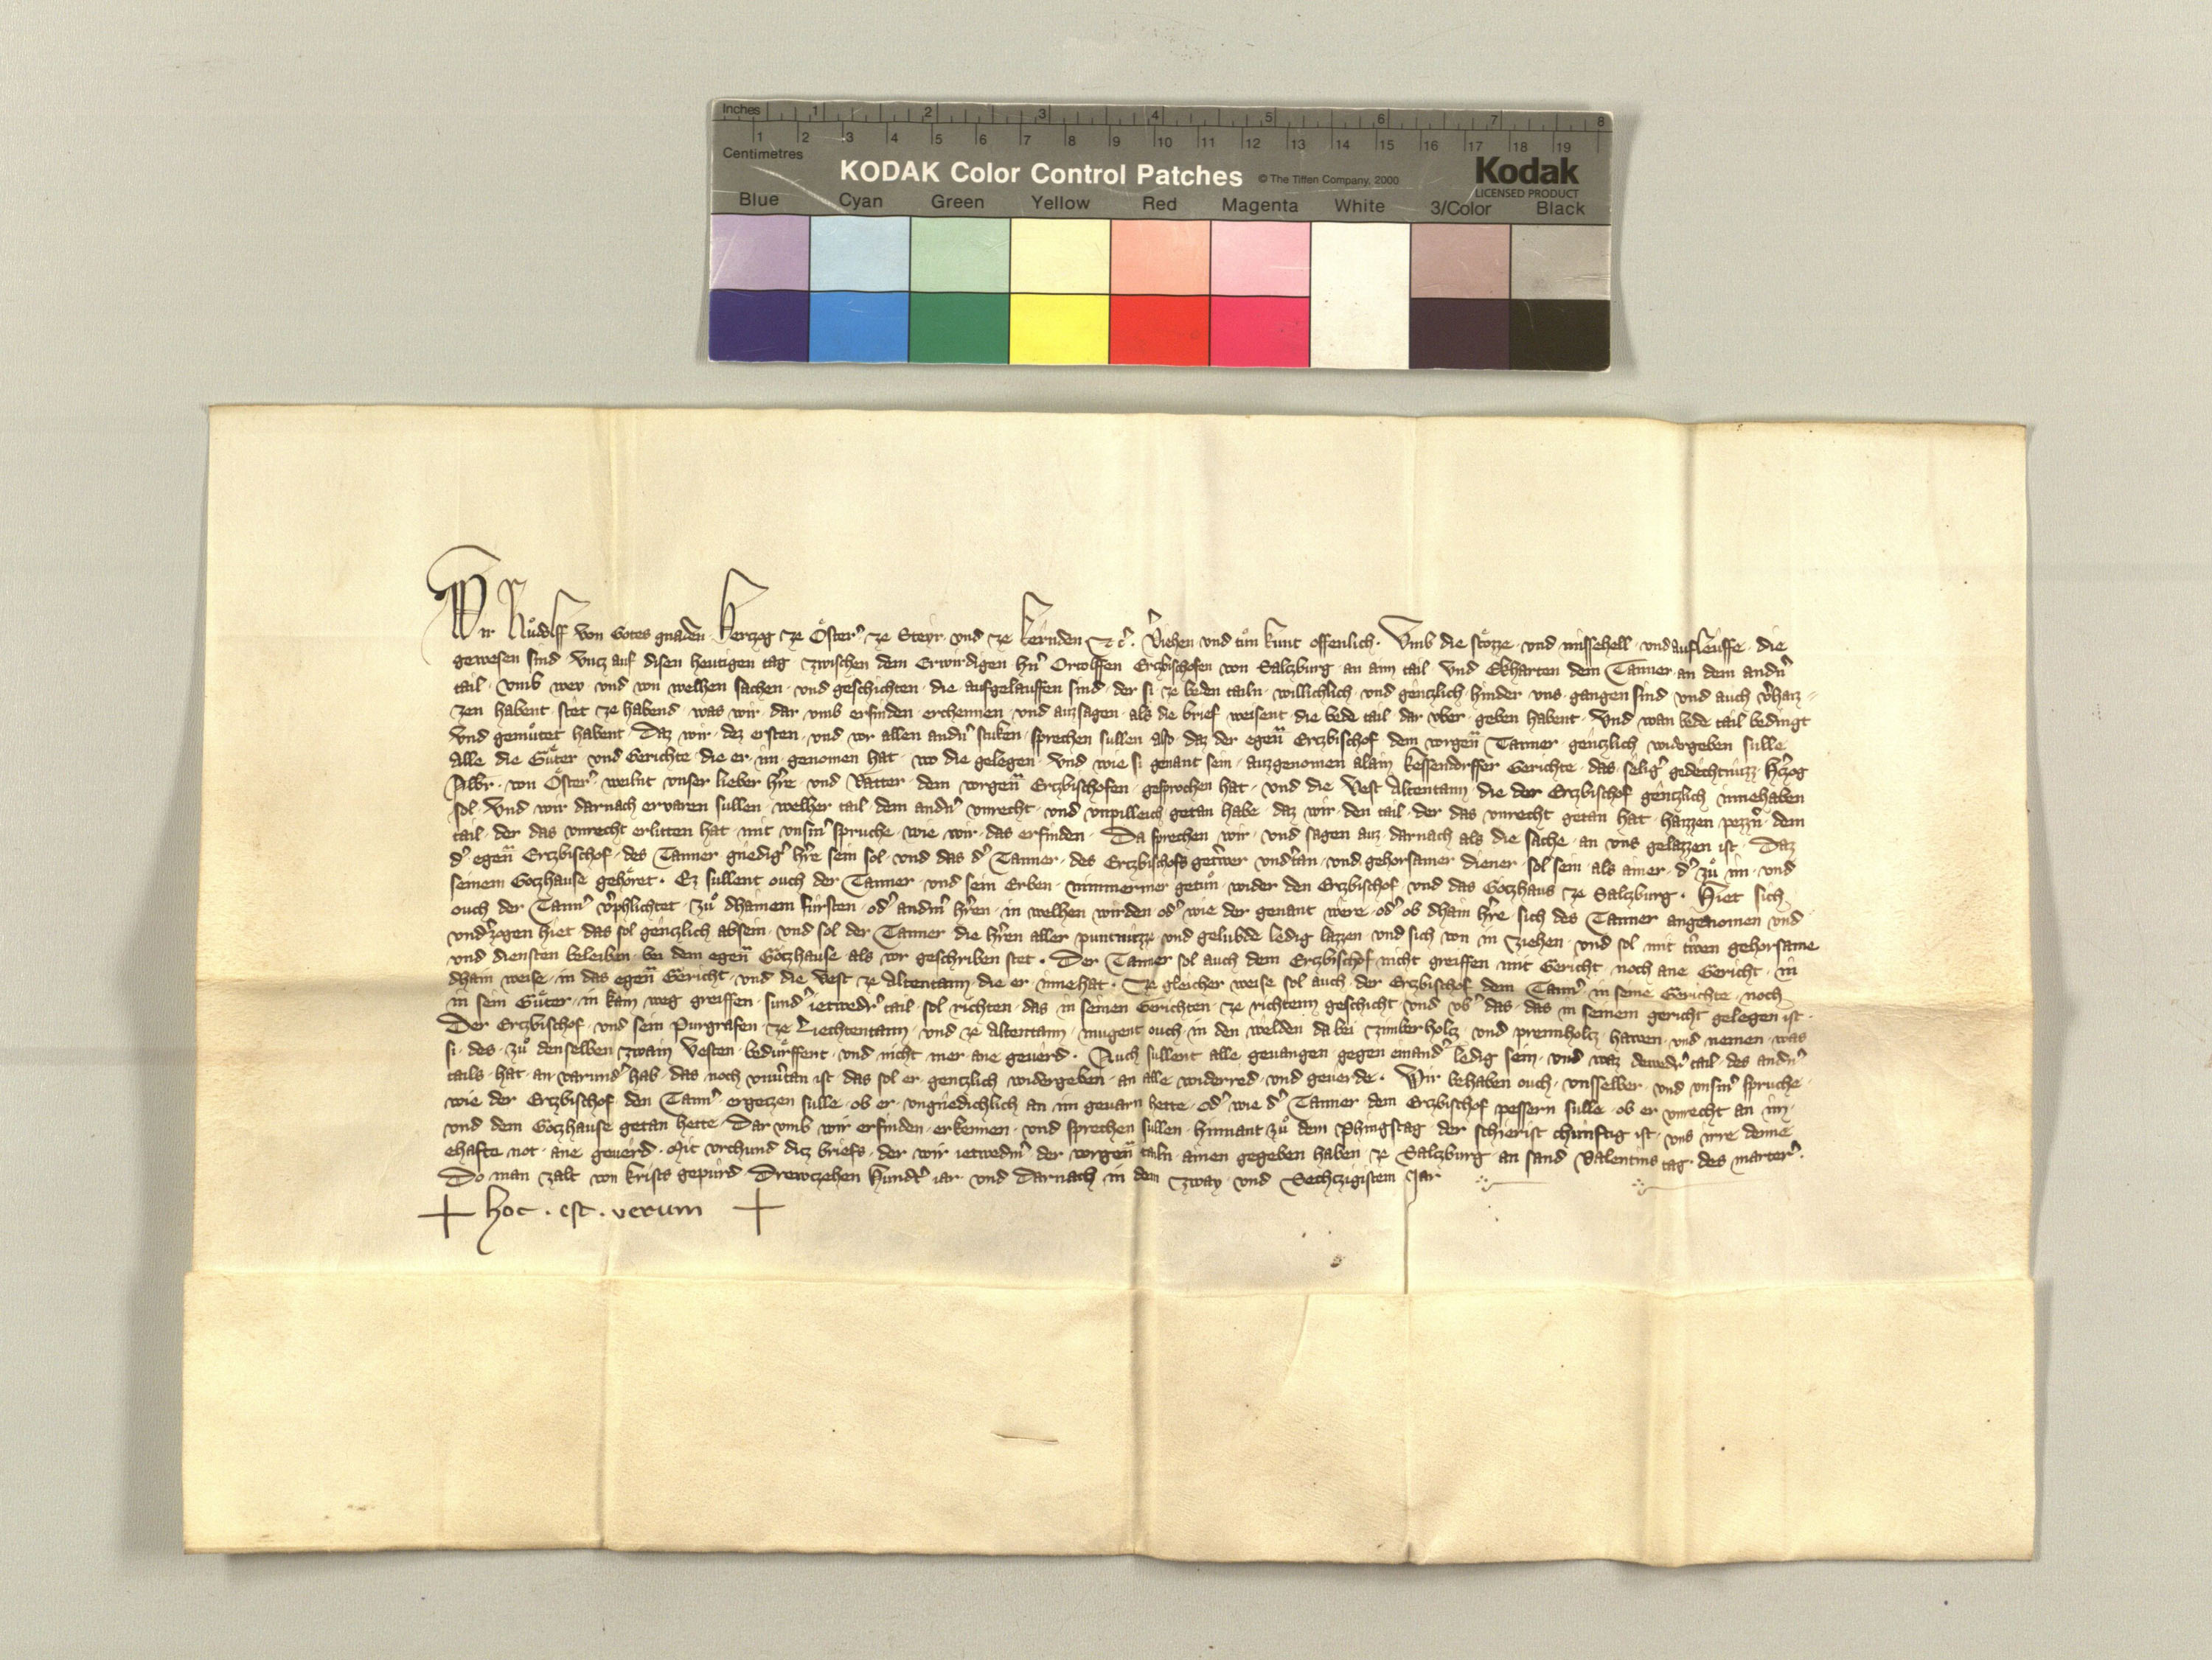 Inches 1 2 3 4 5 6 7 8
1 2 3 4 5 6 7 8 9 10 11 12 13 14 15 16 17 18 19
Centimetres
KODAK Color Control Patches © The Tiffen Company, 2000 Kodak
LICENSED PRODUCT
Blue Cyan Green Yellow Red Magenta White 3/Color Black
Wir Ruͦdolff von Gotes gnaden Hertzog ze Oͤster͛ ze Steyr und ze Kernden ⁊c͛. V͛iehen und tuͦn kunt offenlich. Umb die stoͤzze und missehell und aufleuͤffe die
gewesen sind untz auf disen heutigen tag zwischen dem Erwirdigen h͛n Ortolffen Ertzbischofen von Saltzburg an aim tail und Ekharten dem Tanner an dem andn͛
tail umb wev und von welhen sachen und geschichten die aufgelauffen sind der si ze beden tailn willichlich und gentzlich hinder uns gangen sind und auch v͛haiz-
zen habent stet ze habend was wir dar umb erfinden erchennen und auzsagen als die brief weisent die bede tail dar uber geben habent. Und wan bede tail bedingt
und gemuͤtet habent daz wir dez ersten und vor allen andn͛ stuken sprechen sullen also daz der egen̄ Ertzbischof dem vorgen̄ Tanner gentzlich widergeben sulle
alle die Guͤter und Gerichte die er im genomen hat wo die gelegen und wie si genant sein auzgenomen alain Kessendorffer Gerichte das selig͛ gedechtnuzz H͛tzog
Albr. von Oͤster͛ weilnt unser lieber h͛re und Vatter dem vorgen̄ Ertzbischofen gesprochen hat und die Vest Altentann die der Ertzbischof gentzlich innehaben
sol. Und wir darnach ervaren sullen welher tail dem andn͛ unrecht und unpilleich getan habe daz wir den tail der das unrecht getan hat haizzen pezzn͛ dem
tail der das unrecht erlitten hat mit unsm͛ spruche wie wir das erfinden. Da sprechen wir und sagen auz darnach als die sache an uns gelazzen ist. Daz
d͛ egen̄ Ertzbischof des Tanner gnedig͛ h͛re sein sol und das d͛ Tanner des Ertzbischofs getrewer und͛tan und gehorsamer diener sol sein als ainer d͛ zuͦ im und
seinem Gotzhause gehoͤret. Ez sullent ouch der Tanner und sein Erben nimmermer getuͦn wider den Ertzbischof und das Gotzhaus ze Saltzburg. Hiet sich
ouch der Tann͛ v͛phlichtet zuͦ dhainem fursten od͛ andm͛ h͛ren in welhen wirden od͛ wie der genant were od͛ ob dhain h͛re sich des Tanner angenomen und
und͛zogen hiet das sol gentzlich absein und sol der Tanner die h͛ren aller puntnuzze und gelubde ledig lazzen und sich von in ziehen und sol mit trewen gehorsame
und diensten beleiben bei dem egen̄ Gotzhause als vor geschriben stet. Der Tanner sol auch dem Ertzbischof nicht greiffen mit Gericht noch ane Gericht in
dhain weise in das egen̄ Gericht und die Vest ze Altentann die er innehat. Ze gleicher weise sol auch der Ertzbischof dem Tann͛ in seine Gerichte noch
in sein Guͤter in kain weg greiffen sund͛ ietwedr͛ tail sol richten das in seinen Gerichten ze richtenn geschicht und ub͛ das das in seinem gericht gelegen ist.
Der Ertzbischof und sein Purgrafen ze Liechtentann und ze Altentann mugent ouch in den welden da bei zimberholtz und prennholtz hawen und nemen was
si des zuͦ denselben zwain Vesten beduͤrffent und nicht mer ane geverd. Auch sullent alle gevangen gegen einand͛ ledig sein und waz dewedr͛ tail des andn͛
tails hat an varund͛ hab das noch unv͛tan ist das sol er gentzlich widergeben an alle widerred und geverde. Wir behaben ouch unsselber und unsm͛ spruche
wie der Ertzbischof den Tann͛ ergetzen sulle ob er ungnedichlich an im gevarn hette od͛ wie d͛ Tanner dem Ertzbischof pessern sulle ob er unrecht an im
und dem Gotzhause getan hette. Dar umb wir erfinden erkennen und sprechen sullen hinnant zuͦ dem Phingstag der schierist chunftig ist uns irre denne
ehafte not ane geverd. Mit urchund ditz briefs der wir ietwedm͛ der vorgen̄ tailn ainen gegeben haben ze Saltzburg an sand Valentins tag des marter͛.
Do man zalt von Krists gepurd Drewtzehen Hundt͛ iar und Darnach in dem zway und Sechtzigistem Jar
+ hoc . est . verum +